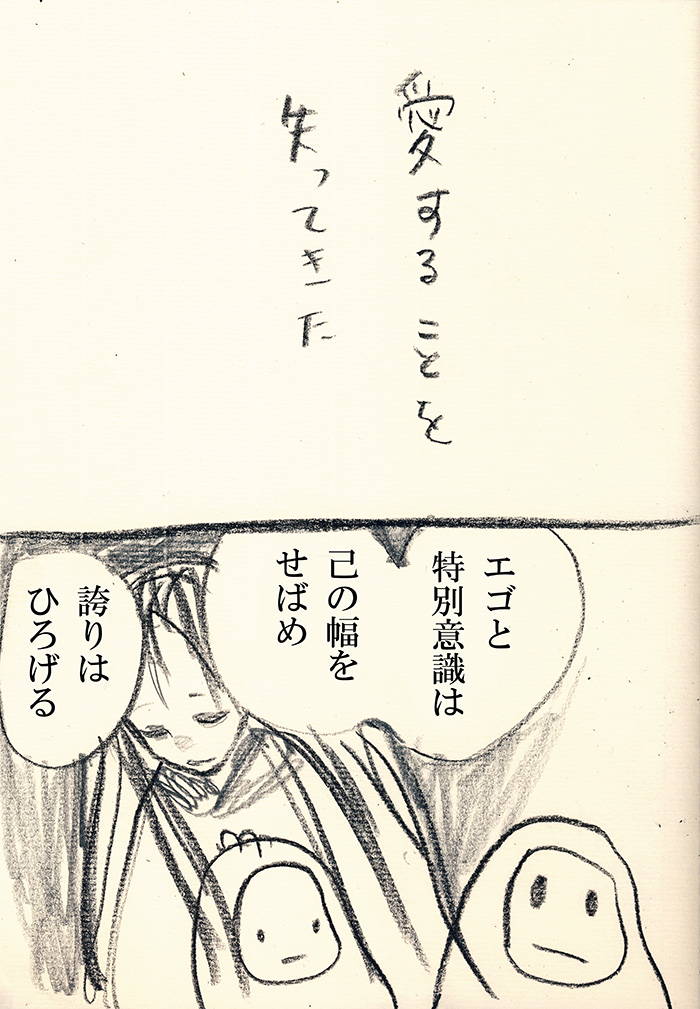 愛することを
失ってきた
エゴと
特別意識は
己の幅を
せばめ
誇りは
ひろげる